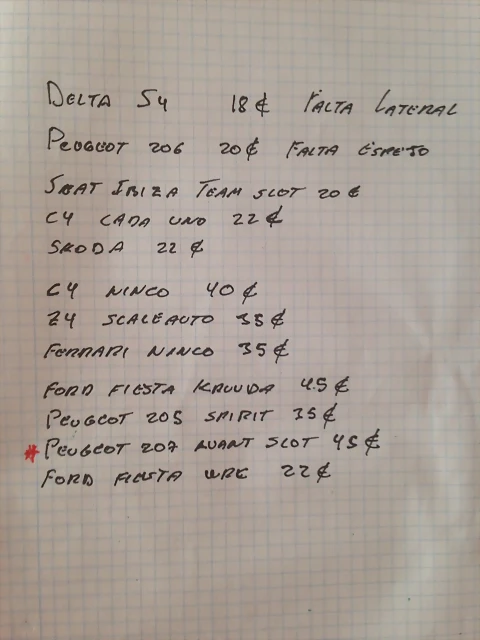 DELTA S4 18 € FALTA LATERAL
PEUGEOT 206 20€ FALTA ESPEJO
SEAT IBIZA TEAM SLOT 20 €
C4 CADA UNO 22 €
SKODA 22 €
C4 NINCO 40 €
Z4 SCALEAUTO 35 €
FERRARI NINCO 35 €
FORD FIESTA KRUUDA 45 €
PEUGEOT 205 SPIRIT 35 €
# PEUGEOT 207 AVANT SLOT 45 €
FORD FIESTA WRC 22 €